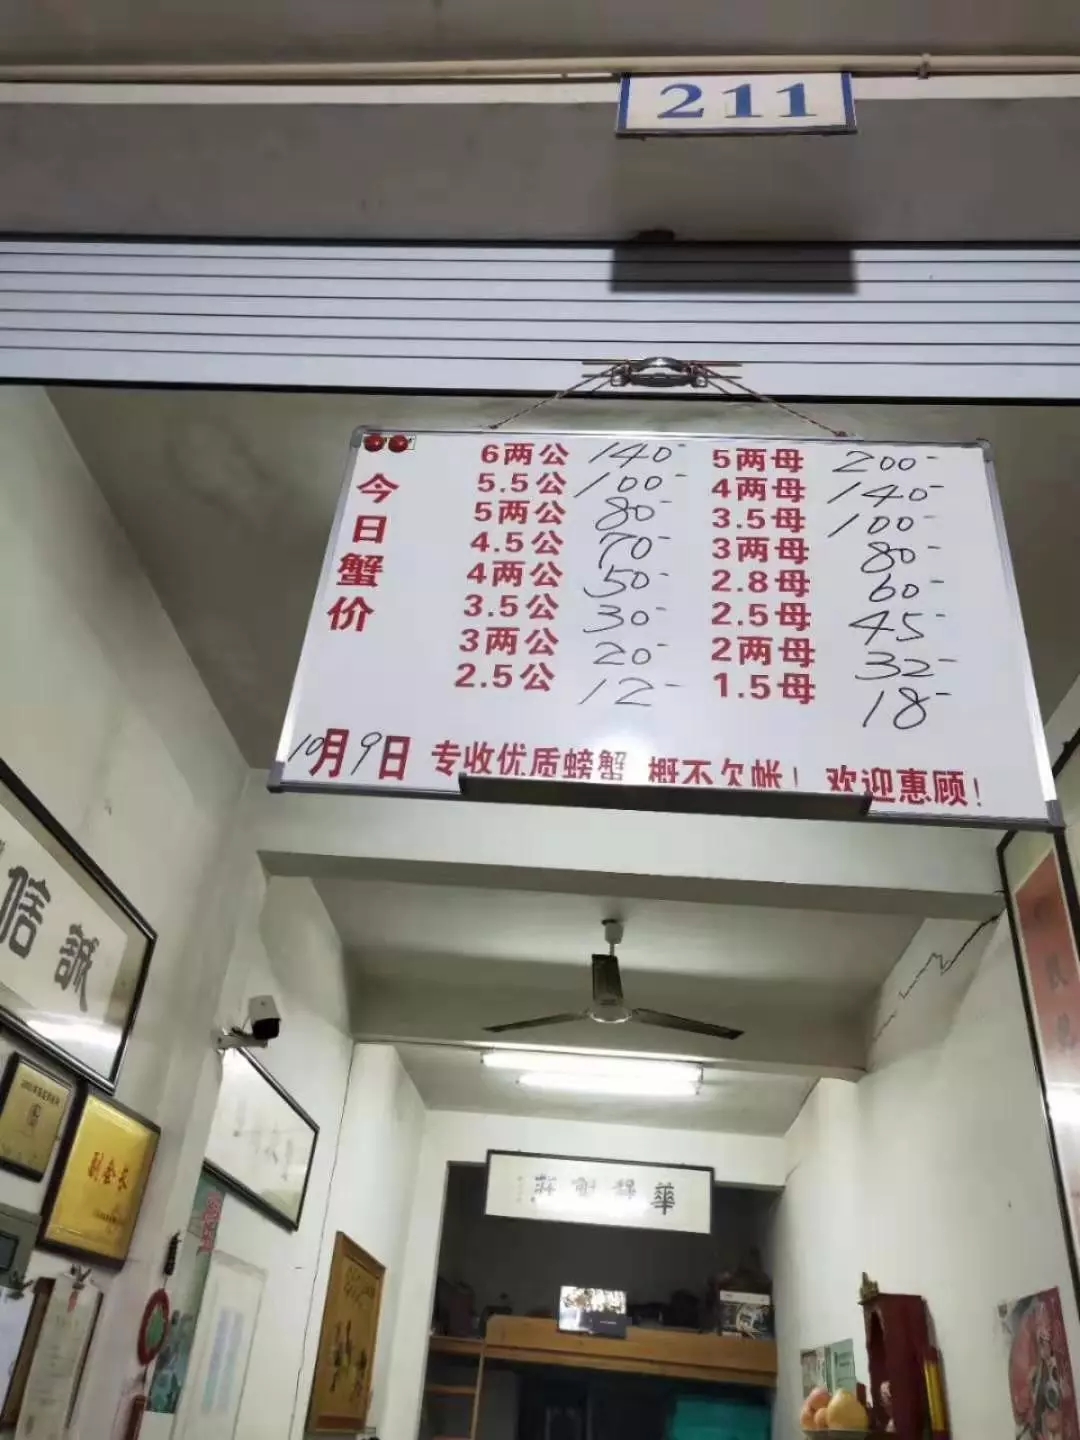 211
今日蟹价
6两公 140-
5.5公 100-
5两公 80-
4.5公 70-
4两公 50-
3.5公 30-
3两公 20-
2.5公 12-
5两母 200-
4两母 140-
3.5母 100-
3两母 80-
2.8母 60-
2.5母 45-
2两母 32-
1.5母 18-
10月9日 专收优质螃蟹 概不欠帐！欢迎惠顾！
信誠
副会长